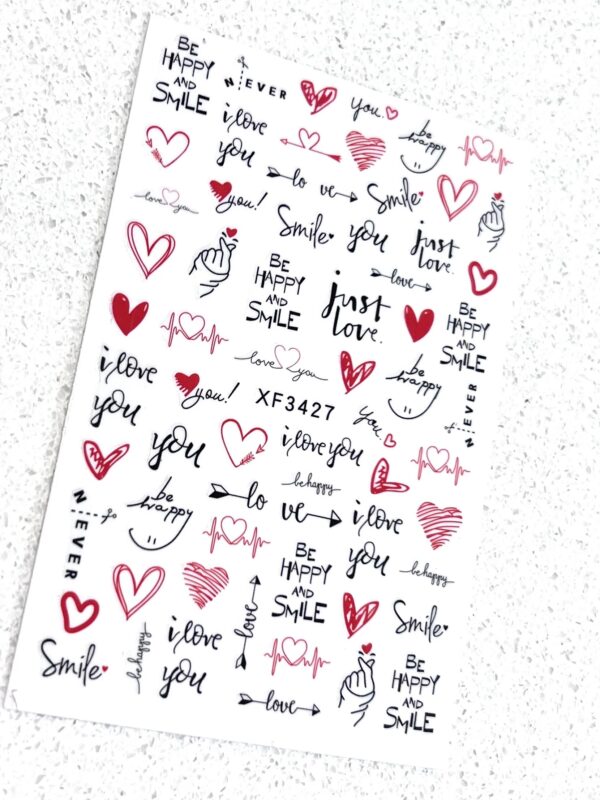 BE
HAPPY
AND
SMILE
N EVER
you.
be
happy
i love
you
lo ve
Smile
love you
you!
Smile
you
just
love.
love
BE
HAPPY
AND
SMILE
just
love.
BE
HAPPY
AND
SMILE
love you
be
happy
i love
you
you!
XF3427
you
N EVER
you
i love you
be happy
be
happy
lo ve
i love
you
be happy
N EVER
BE
HAPPY
AND
SMILE
love
Smile
Smile
be happy
i love
you
love
BE
HAPPY
AND
SMILE